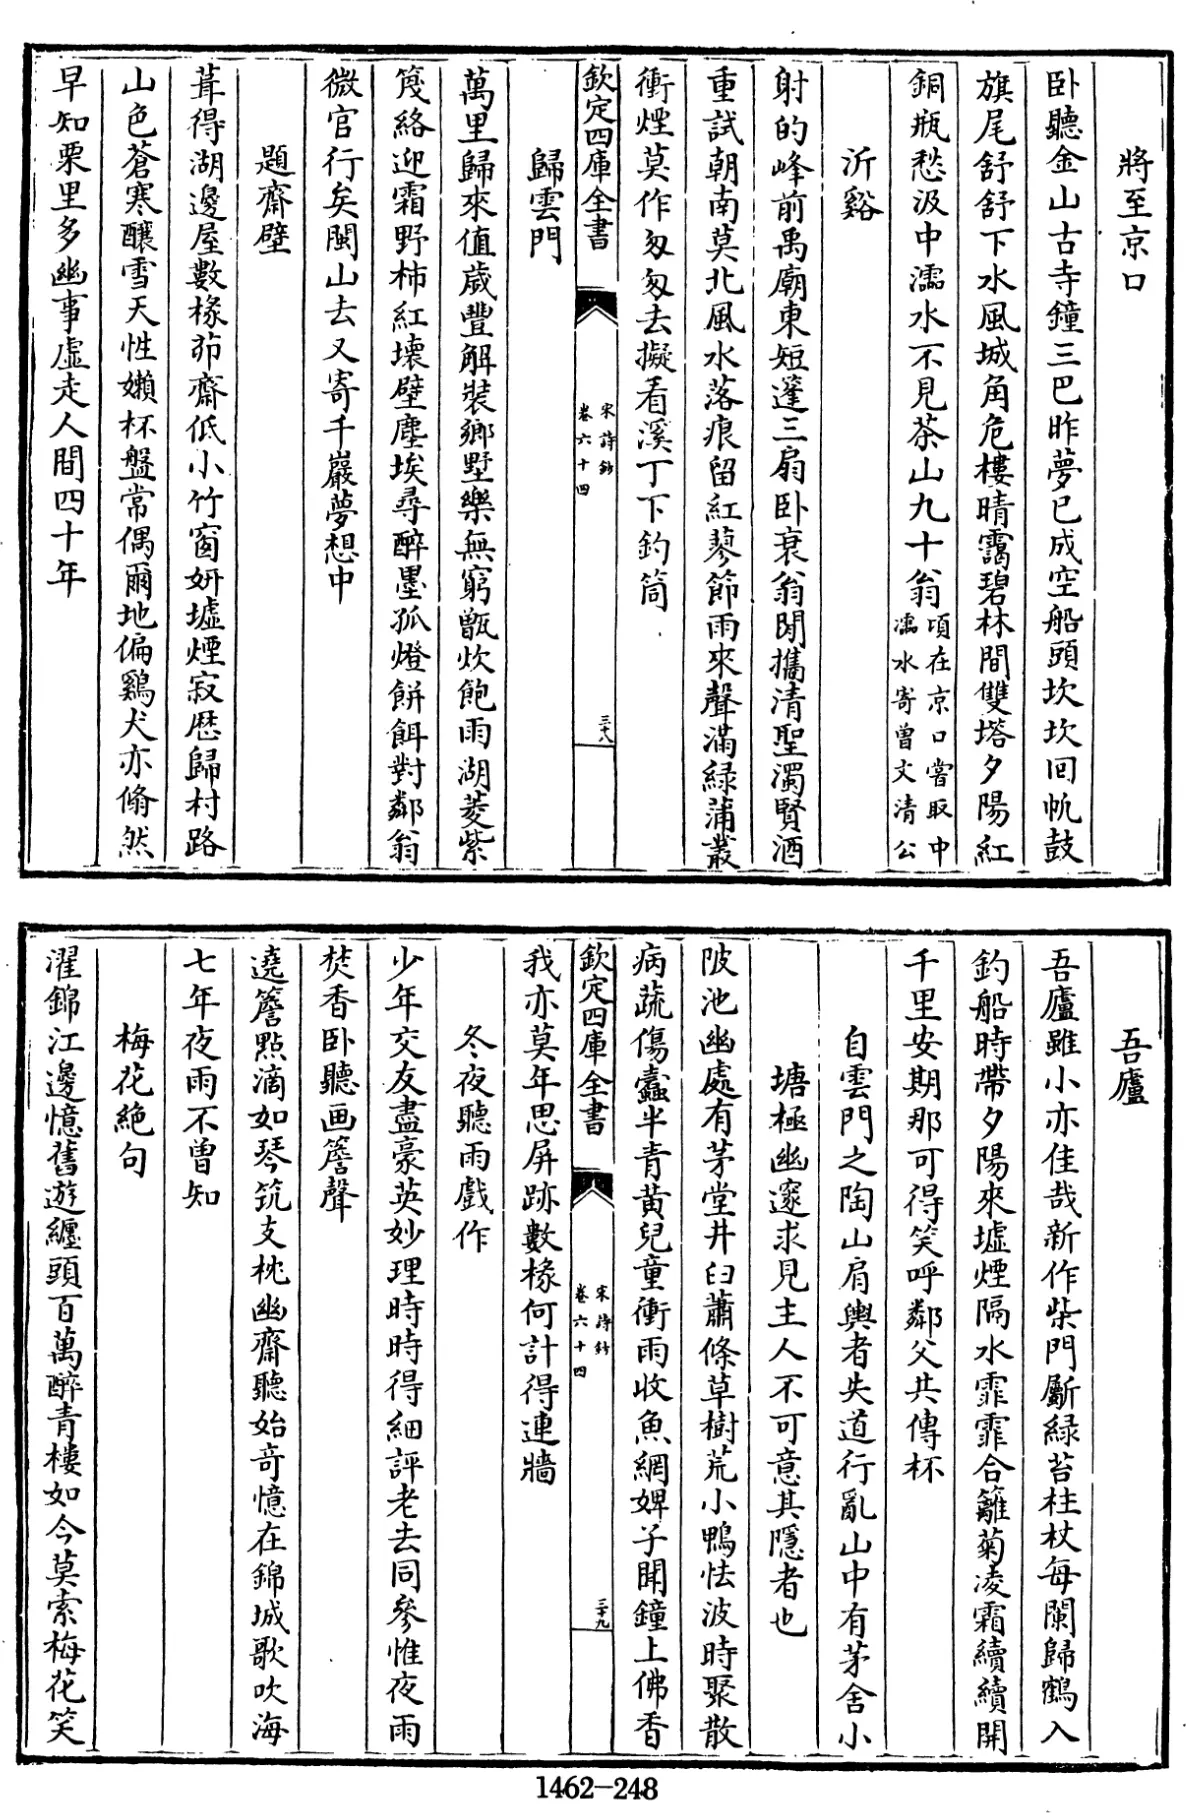 將至京口
卧聽金山古寺鐘三巴昨夢已成空船頭坎坎回帆鼓
旗尾舒舒下水風城角危樓晴靄碧林間雙塔夕陽紅
銅瓶愁汲中濡水不見茶山九十翁頃在京口嘗取中
濡水寄曾文清公
沂谿
射的峰前禹廟東短篷三扇卧衰翁閒攜清聖濁賢酒
重試朝南莫北風水落痕留紅蓼節雨來聲滿緑蒲叢
衝煙莫作匆匆去擬看溪丁下釣筒
欽定四庫全書
宋詩鈔
卷六十四
三十八
歸雲門
萬里歸來值歲豐解裝鄉墅樂無窮甑炊飽雨湖菱紫
篾絡迎霜野柿紅壞壁塵埃尋醉墨孤燈餅餌對鄰翁
微官行矣閩山去又寄千巖夢想中
題齋壁
葺得湖邊屋數椽茆齋低小竹窗妍墟煙寂歷歸村路
山色蒼寒釀雪天性嬾杯盤常偶爾地偏鷄犬亦翛然
早知栗里多幽事虛走人間四十年
吾廬
吾廬雖小亦佳哉新作柴門斸緑苔柱杖每闌歸鶴入
釣船時帶夕陽來墟煙隔水霏霏合籬菊凌霜續續開
千里安期那可得笑呼鄰父共傳杯
自雲門之陶山肩輿者失道行亂山中有茅舍小
塘極幽邃求見主人不可意其隱者也
陂池幽處有茅堂井臼蕭條草樹荒小鴨怯波時聚散
病蔬傷蠧半青黄兒童衝雨收魚網婢子聞鐘上佛香
欽定四庫全書
宋詩鈔
卷六十四
三十九
我亦莫年思屏跡數椽何計得連牆
冬夜聽雨戲作
少年交友盡豪英妙理時時得細評老去同參惟夜雨
焚香卧聽画簷聲
遶簷點滴如琴筑支枕幽齋聽始竒憶在錦城歌吹海
七年夜雨不曾知
梅花絶句
濯錦江邊憶舊遊纏頭百萬醉青樓如今莫索梅花笑
1462-248